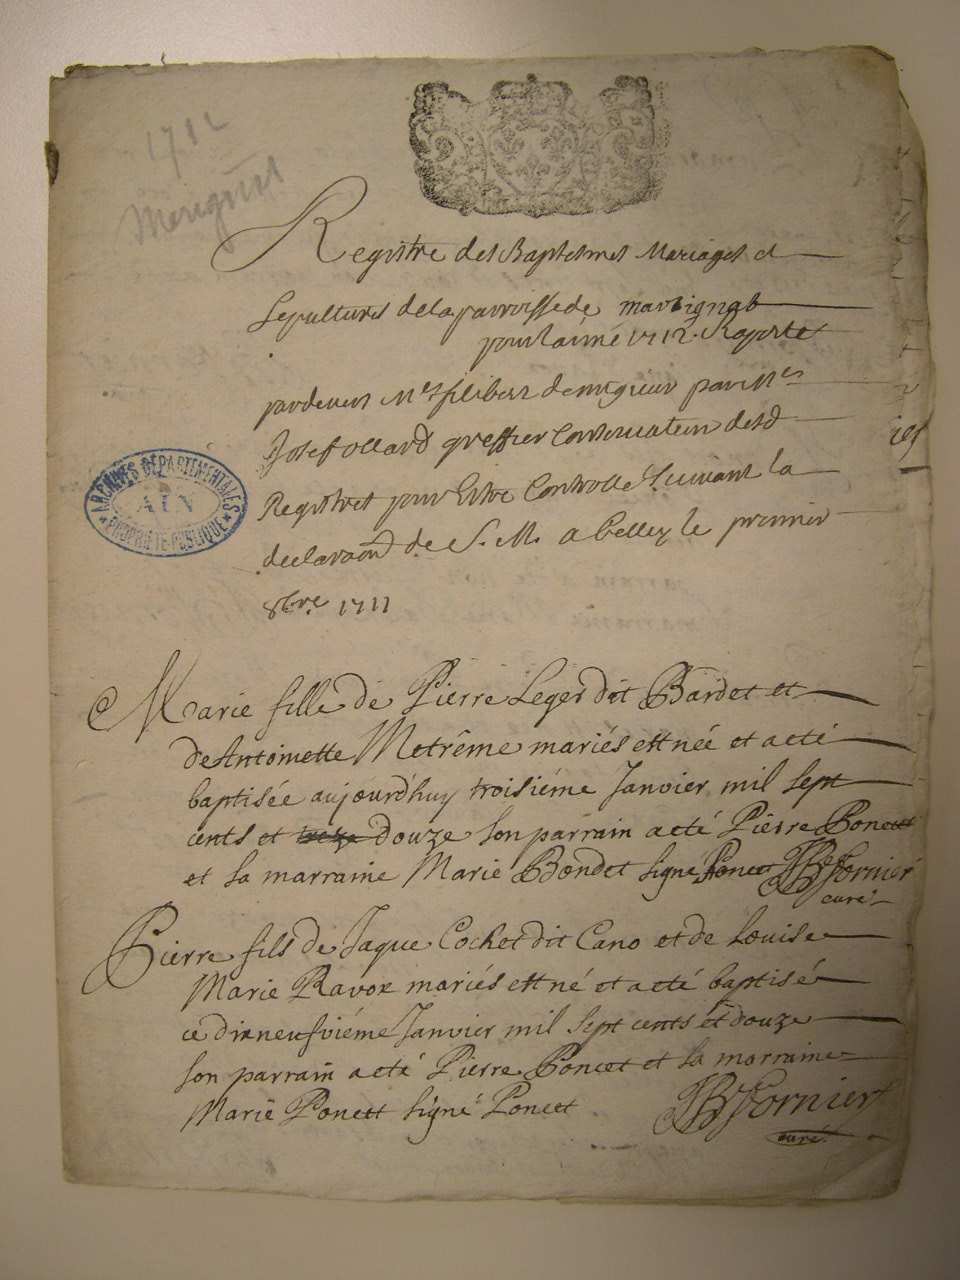 1712
Registre des Baptesmes Mariages et
Sepultures de la parroisse de marsignat
pour l'anné 1712. Raporté
pardevers Me filibert demigieu par Me
Josef ollard greffier Conservateur desd
Registres pour Estre Controllé Suivant la
declaraon de S. M. a belley le premier
8bre 1711
ARCHIVES DÉPARTEMENTALES
AIN
PROPRIÉTÉ PUBLIQUE
Marie fille de Pierre Leger dit Bardet et
de Antoinette Metrême mariés est née et a eté
baptisée aujourd'huy troisiéme Janvier mil sept
cents et treze douze son parrain a eté Pierre Poncet
et sa marraine Marie Bondet signé Poncet JBFornier
curé
Pierre fils de Jaque Cochet dit Cano et de Louise
Marie Ravox mariés est né et a eté baptisé
ce dixneufviéme Janvier mil sept cents et douze
son parrain a eté Pierre Poncet et sa marraine
Marie Poncet signé Poncet JBFornier
curé